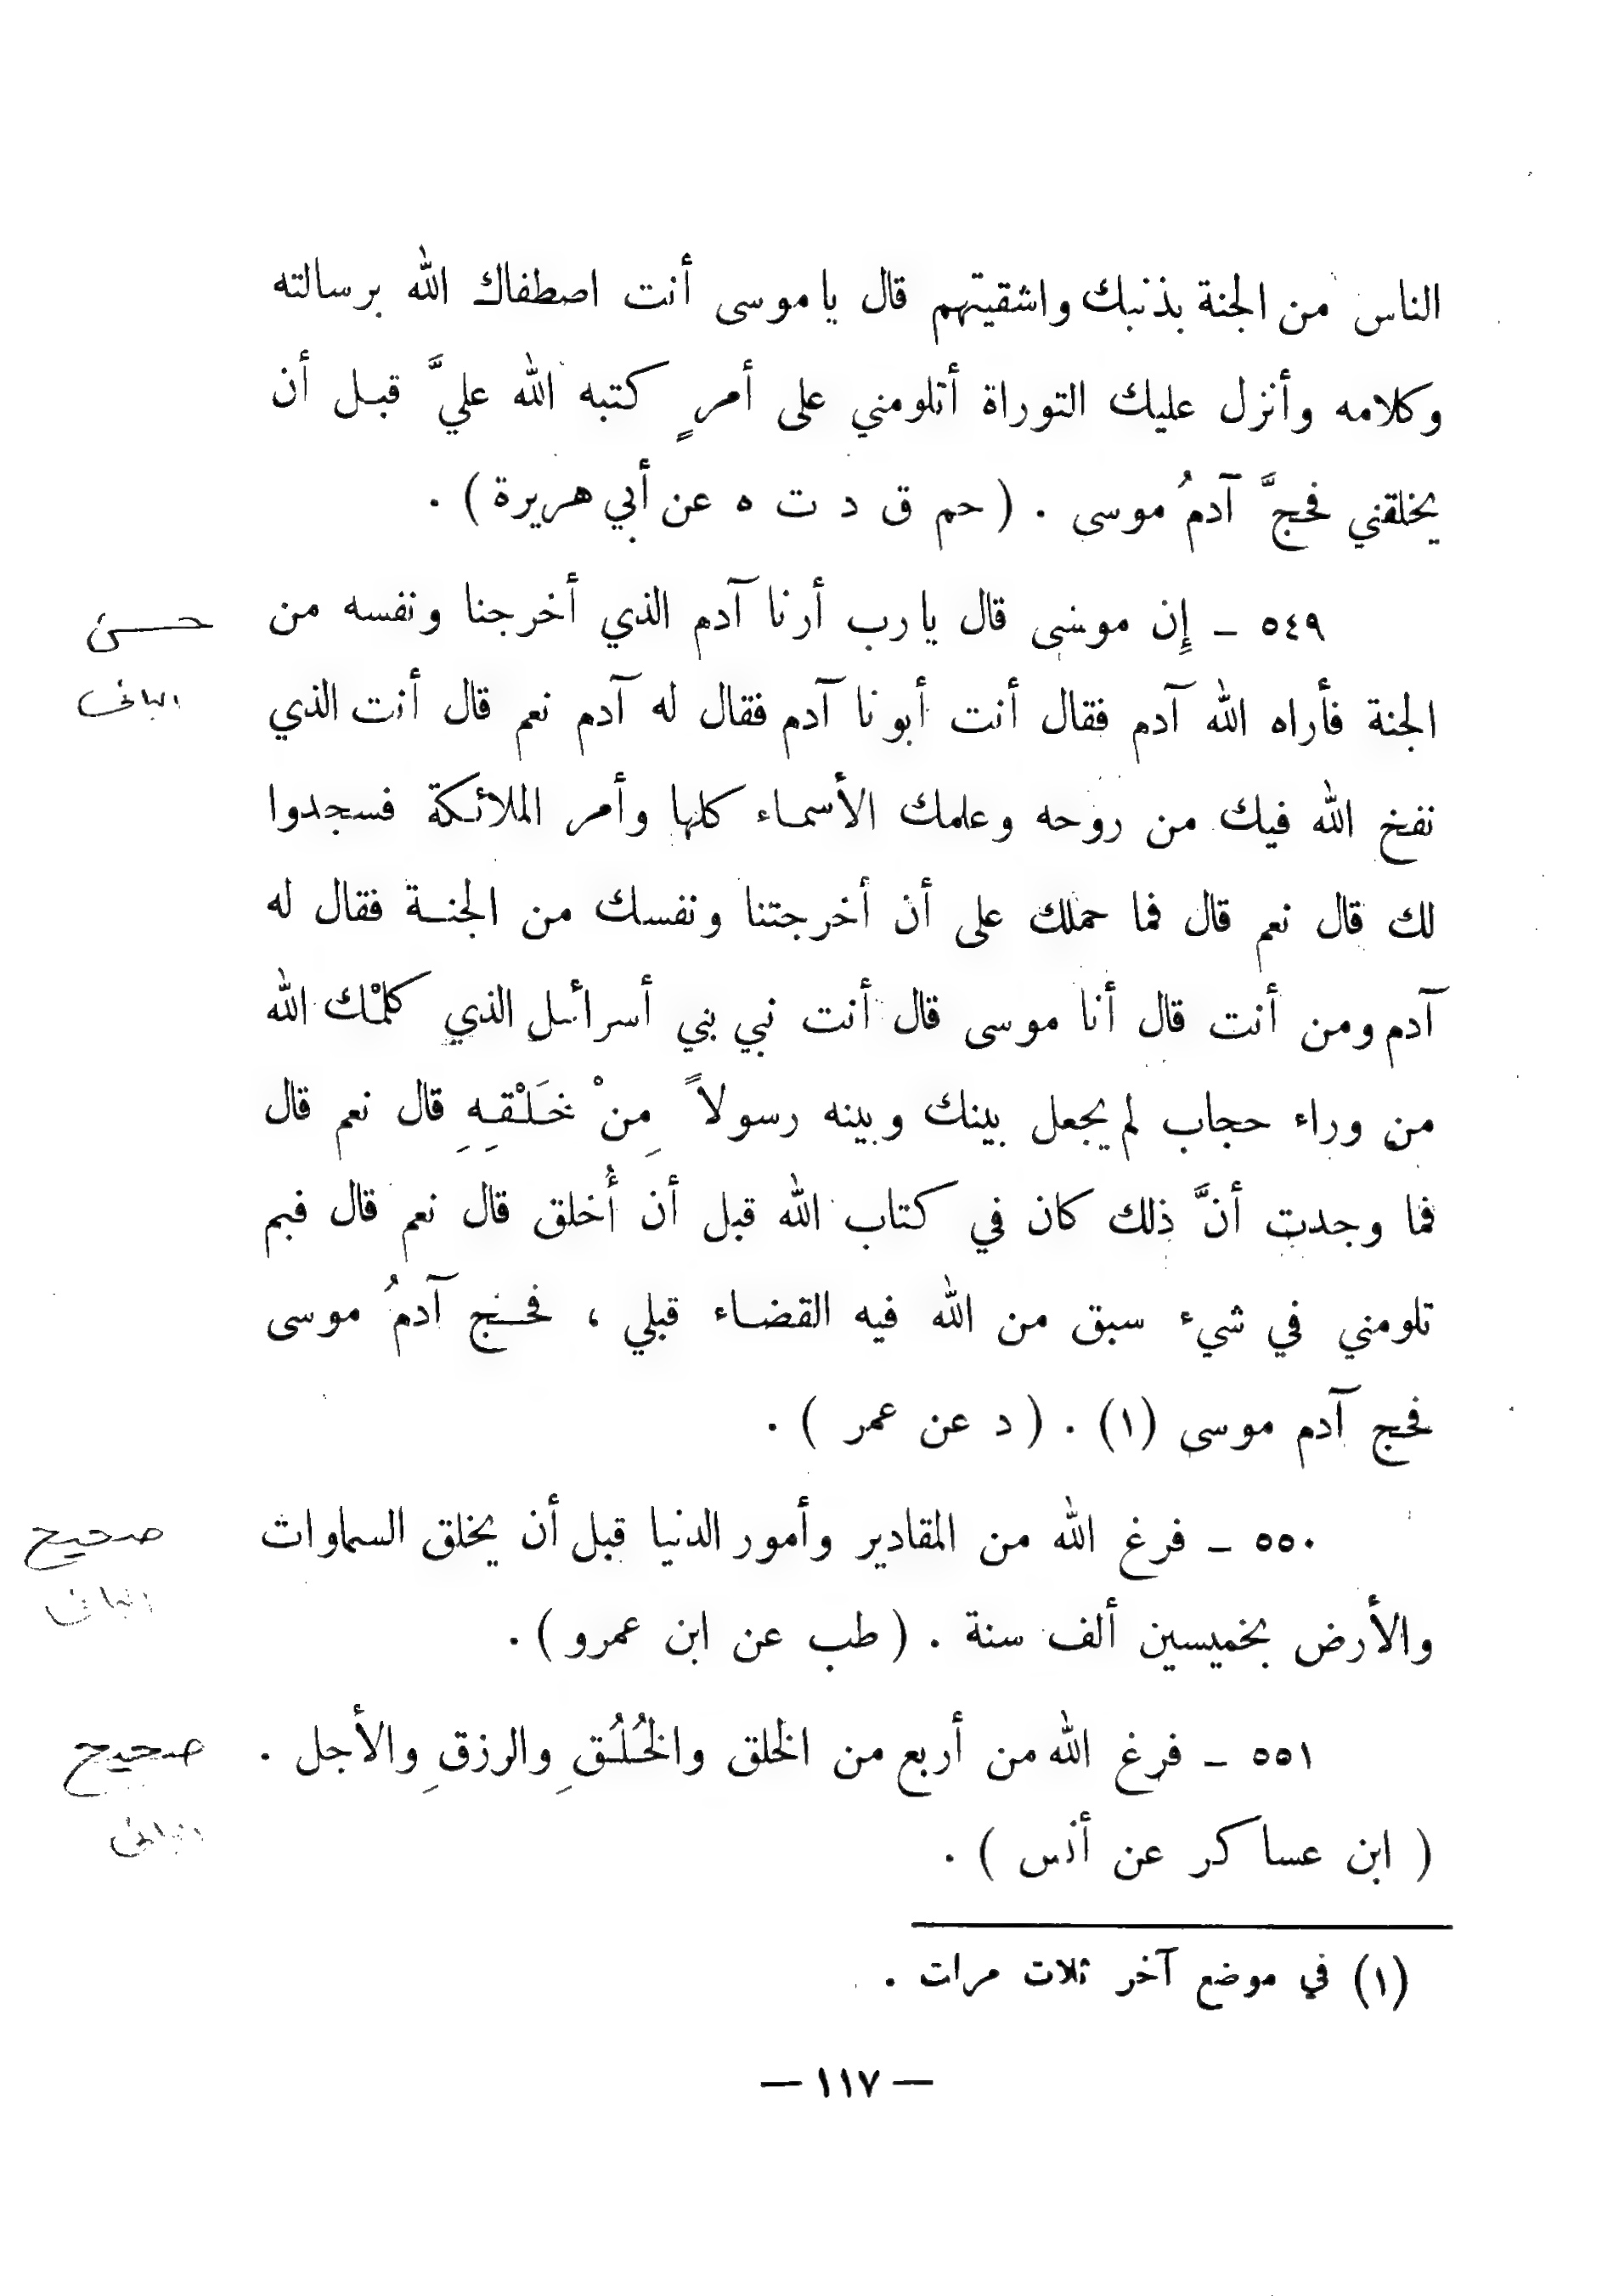 الناس من الجنة بذنبك واشقيتهم قال يا موسى أنت اصطفاك الله برسالته
وكلامه وأنزل عليك التوراة أتلومني على أمرٍ كتبه الله عليَّ قبل أن
يخلقني فحجَّ آدمُ موسى . ( حم ق د ت ه عن أبي هريرة ) .
٥٤٩ ــ إِن موسى قال يا رب أرنا آدم الذي أخرجنا ونفسه من
حسن
الجنة فأراه الله آدم فقال أنت أبونا آدم فقال له آدم نعم قال أنت الذي
الباني
نفخ الله فيك من روحه وعلمك الأسماء كلها وأمر الملائكة فسجدوا
لك قال نعم قال فما حملك على أن أخرجتنا ونفسك من الجنة فقال له
آدم ومن أنت قال أنا موسى قال أنت نبي بني أسرائيل الذي كلمْك الله
من وراء حجاب لم يجعل بينك وبينه رسولاً مِنْ خَلْقِهِ قال نعم قال
فما وجدت أنَّ ذلك كان في كتاب الله قبل أن أُخلق قال نعم قال فبم
تلومني في شيء سبق من الله فيه القضاء قبلي ، فحج آدمُ موسى
فحج آدم موسى (١) . ( د عن عمر ) .
٥٥٠ ــ فرغ الله من المقادير وأمور الدنيا قبل أن يخلق السماوات
صحيح
الباني
والأرض بخميسين ألف سنة . ( طب عن ابن عمرو ) .
٥٥١ ــ فرغ الله من أربع من الخلق والخُلُقِ والرزقِ والأجل .
صحيح
الباني
( ابن عساكر عن أنس ) .
(١) في موضع آخر ثلاث مرات .
— ١١٧ —